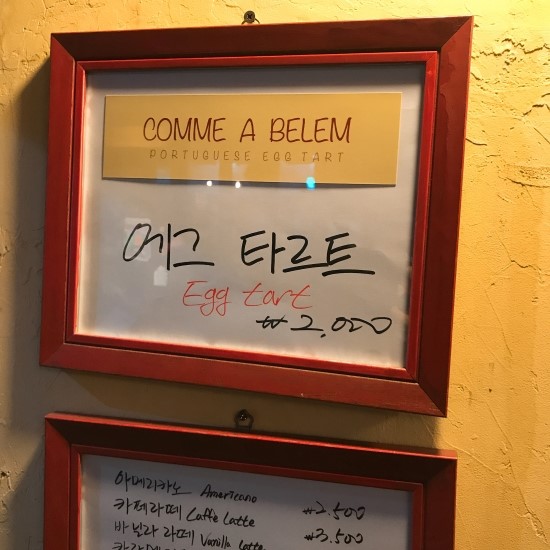 COMME A BELEM
PORTUGUESE EGG TART
에그 타르트
Egg tart
₩2,000
아메리카노 Americano ₩2.500
카페라떼 Caffe Latte ₩3.500
바닐라 라떼 Vanilla Latte